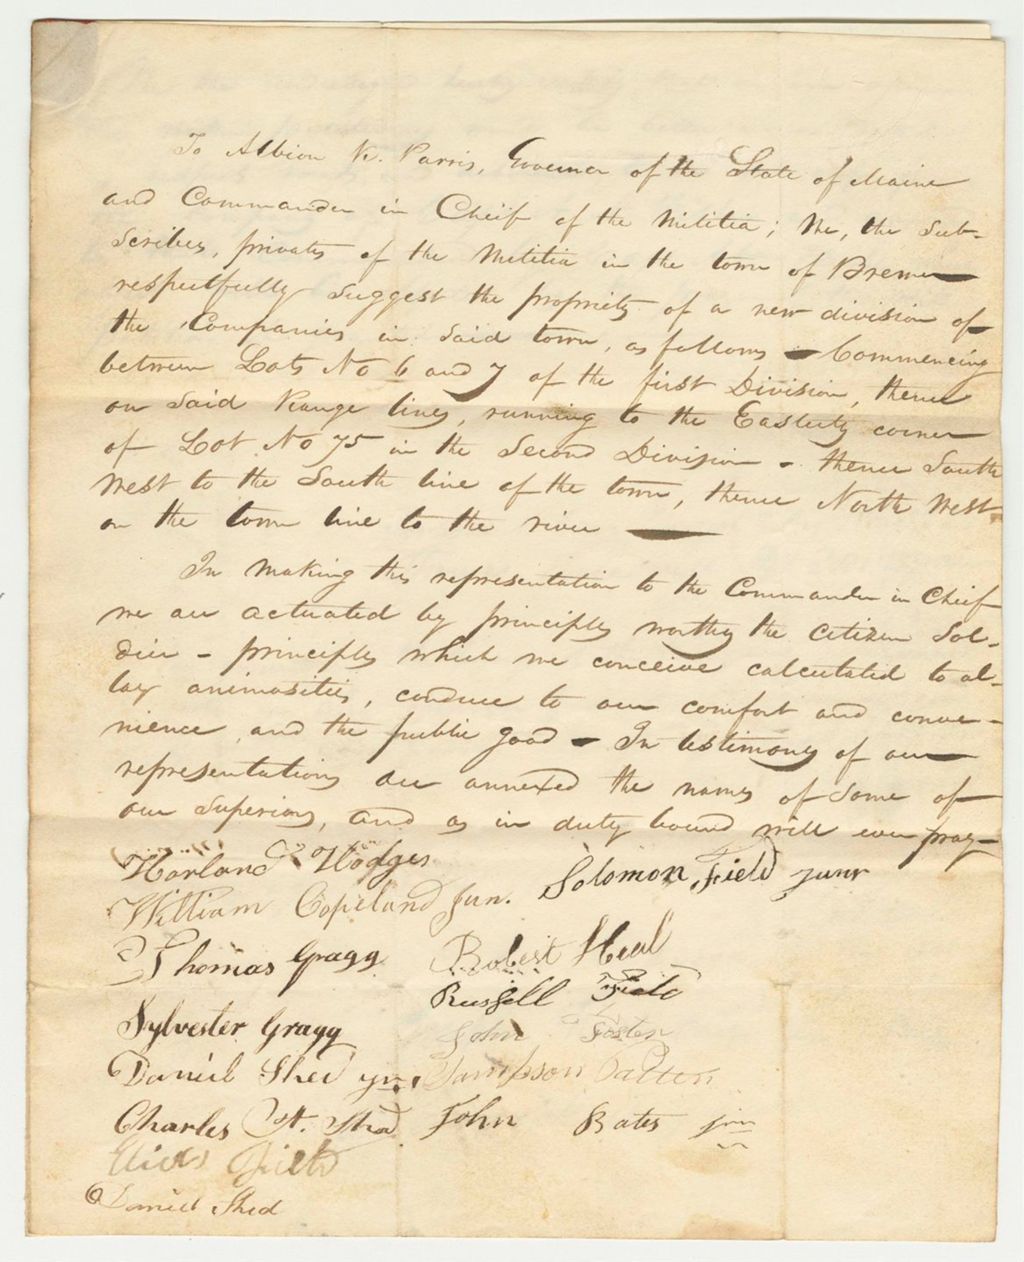 To Albion K. Parris, Governor of the State of Maine
and Commander in Cheif of the Militia; We, the Sub-
scribers, privates of the Militia in the town of Bremen
respectfully suggest the propriety of a new division of
the Companies in said town, as follows – Commencing
between Lots No 6 and 7 of the first Division, thence
on said Range lines, running to the Easterly corner
of Lot No 75 in the Second Division – thence South
West to the South line of the town, thence North West
on the town line to the river —
In making this representation to the Commander in Chief
we are actuated by principles worthy the citizen Sol-
dier – principles which we conceive calculated to al-
lay animosities, conduce to our comfort and conve-
nience, and the public good – In testimony of our
representations are annexed the names of some of
our superiors, and as in duty bound will ever pray –
Harland Hodges
William Copeland Jun. Solomon Field junr
Thomas Gragg Robert Heal
Russell Field
Sylvester Gragg John Foster
Daniel Shed jnr. Sampson Patten
Charles Shed John Bates jun
Field
Daniel Shed